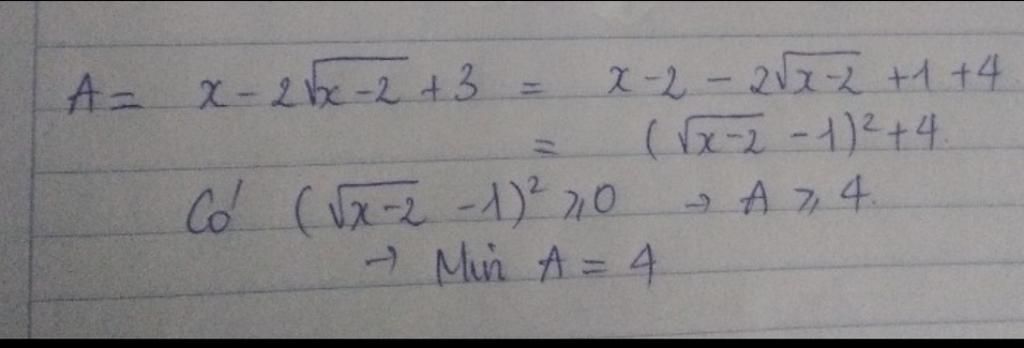 A = x - 2√x-2 + 3 = x - 2 - 2√x-2 + 1 + 4
= (√x-2 - 1)² + 4.
Có (√x-2 - 1)² ⩾ 0 → A ⩾ 4.
→ Min A = 4